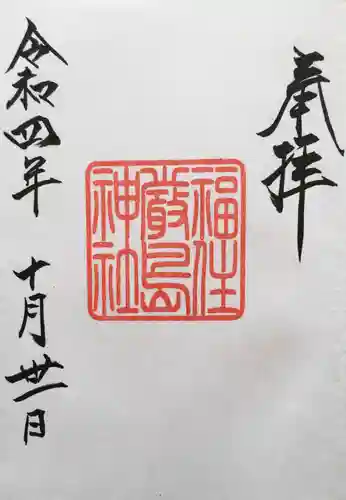 奉拝
福住
厳島
神社
令和四年
十月卅一日